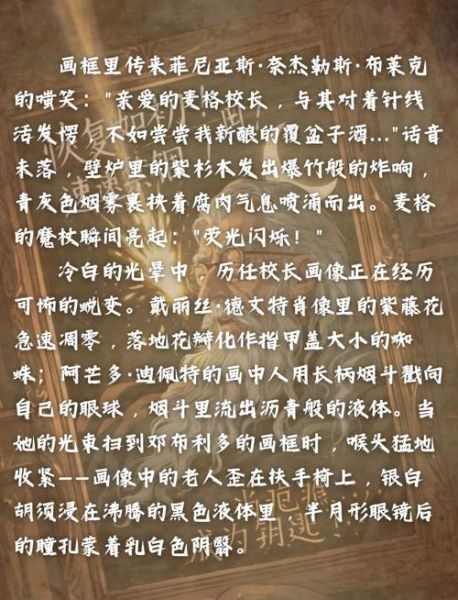 画框里传来菲尼亚斯·奈杰勒斯·布莱克
的嗤笑："亲爱的麦格校长，与其对着针线
活发愣，不如尝尝我新酿的覆盆子酒..."话音
未落，壁炉里的紫杉木发出爆竹般的炸响，
青灰色烟雾裹挟着腐肉气息喷涌而出。麦格
的魔杖瞬间亮起："荧光闪烁！"
冷白的光晕中，历任校长画像正在经历
可怖的蜕变。戴丽丝·德文特肖像里的紫藤花
急速凋零，落地花瓣化作指甲盖大小的蜘
蛛；阿芒多·迪佩特的画中人用长柄烟斗戳向
自己的眼球，烟斗里流出沥青般的液体。当
她的光束扫到邓布利多的画框时，喉头猛地
收紧——画像中的老人歪在扶手椅上，银白
胡须浸在沸腾的黑色液体里，半月形眼镜后
的瞳孔蒙着乳白色阴翳。
恢复如初！